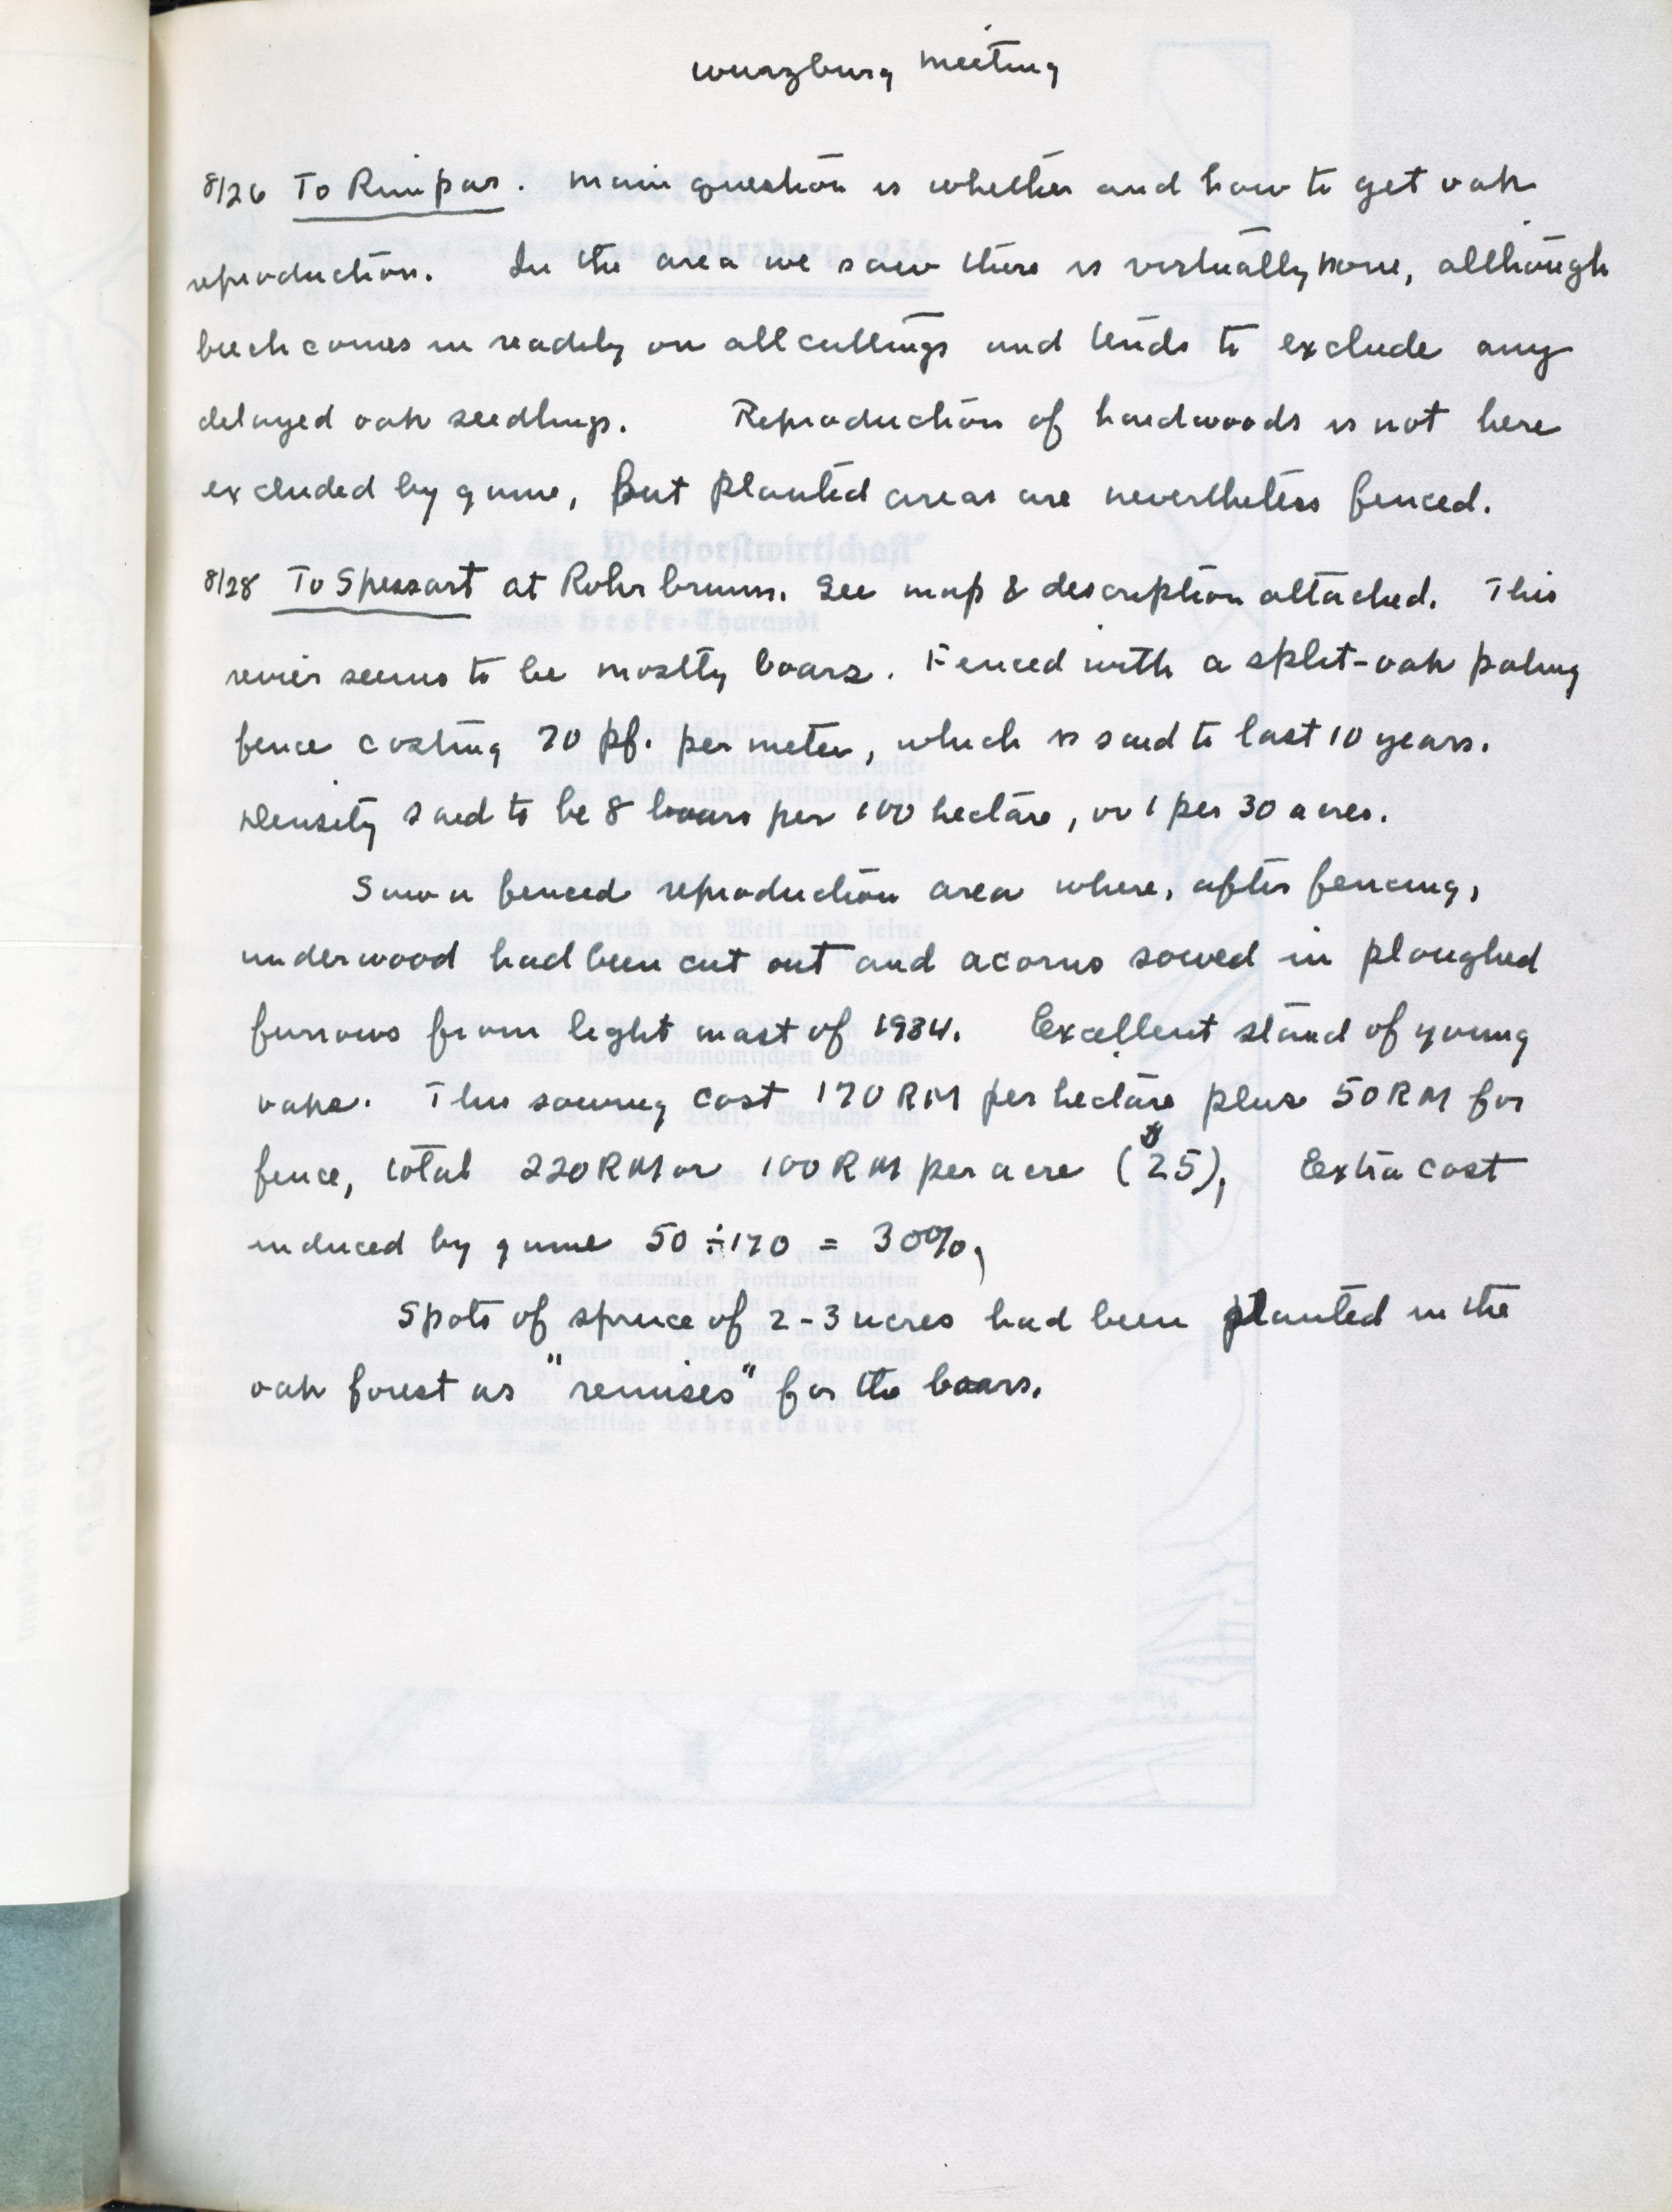 Wurzburg Meeting
8/26 To Rimpar. Main question is whether and how to get oak
reproduction. In the area we saw there is virtually none, although
beech comes in readily on all cuttings and tends to exclude any
delayed oak seedlings. Reproduction of hardwoods is not here
excluded by game, but planted areas are nevertheless fenced.
8/28 To Spessart at Rohrbrunn. See map & description attached. This
revier seems to be mostly boars. Fenced with a split-oak paling
fence costing 70 pf. per meter, which is said to last 10 years.
Density said to be 8 boars per 100 hectare, or 1 per 30 acres.
Saw a fenced reproduction area where, after fencing,
underwood had been cut out and acorns sowed in ploughed
furrows from light mast of 1934. Excellent stand of young
oaks. This sowing cost 170 RM per hectare plus 50 RM for
fence, total 220 RM or 100 RM per acre ($25). Extra cost
induced by game 50 ÷ 170 = 30%.
Spots of spruce of 2-3 acres had been planted in the
oak forest as "remises" for the boars.